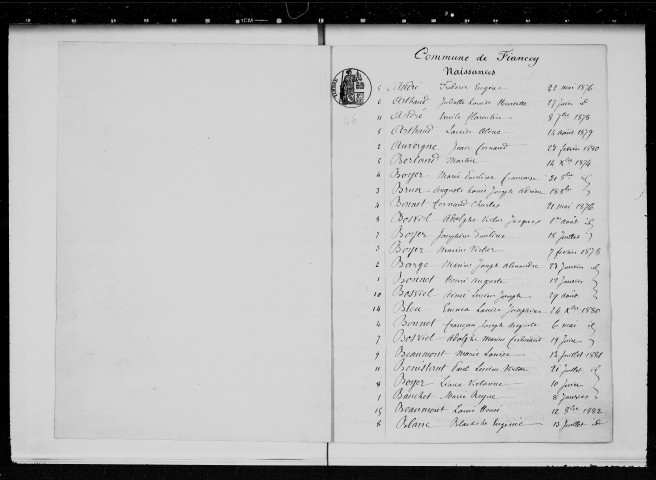 Commune de Fiancey
Naissances
5 André Frédéric Eugène 22 mai 1876
6 Arthaud Juliette Louise Henriette 27 juin id
11 André Emile Florentin 8 7bre 1878
5 Arthaud Louise Aline 14 août 1879
2 Auvergne Jean Fernand 23 février 1880
5 Berland Martin 14 Xbre 1874
4 Boyer Marie Emilina Françoise 31 8bre id
3 Brun Auguste Louis Joseph Adrien 18 8bre
4 Bonnet Fernand Charles 21 mai 1876
8 Bosviel Adolphe Victor Jacques 1er août id
7 Boyer Joséphine Emiline 18 juillet
3 Boyer Marius Victor 7 février 1878
2 Barge Marius Joseph Alexandre 23 janvier id
1 Bonnet Henri Auguste 12 janvier
10 Bosviel Aimé Lucien Joseph 29 août
14 Bleu Emma Louise Joséphine 24 Xbre 1880
4 Bonnet François Joseph Auguste 6 mai id
7 Bosviel Adolphe Marius Ferdinand 19 juin
9 Beaumont Marie Louise 13 juillet 1881
11 Benistant Paul Lucien Victor 21 juillet id
8 Boyer Liana Victorine 10 juin
1 Banchet Marie Reyne 8 janvier
15 Beaumont Louis Henri 12 9bre 1882
8 Blanc Blanche Eugénie 13 juillet id